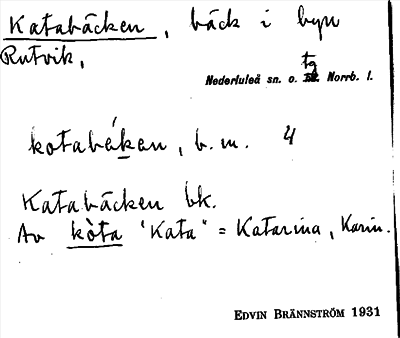 Katabäcken, bäck i byn
Rutvik,
tg
Nederluleå sn. o. Norrb. l.
kotabékən, b. m. 4
Katabäcken bk.
Av kòta "Kata" = Katarina, Karin.
EDVIN BRÄNNSTRÖM 1931